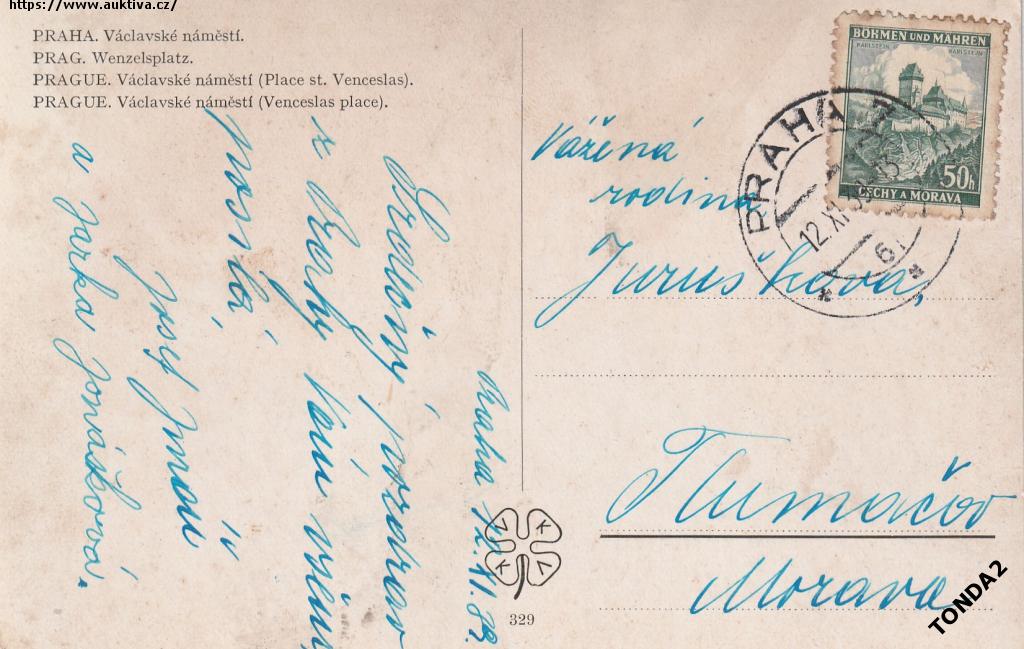 https://www.auktiva.cz/
PRAHA. Václavské náměstí.
PRAG. Wenzelsplatz.
PRAGUE. Václavské náměstí (Place st. Venceslas).
PRAGUE. Václavské náměstí (Venceslas place).
Praha 12.XI.
Srdečný pozdrav
z Prahy Vám všem
posílá
Josef
a Jarka Jonášková.
329
BÖHMEN UND MÄHREN
KARLSTEIN KARLŠTEJN
50h
ČECHY A MORAVA
PRAHA 7
12.XI
6
Vážená
rodina
Juruškova,
Tlumačov
Morava
TONDA2